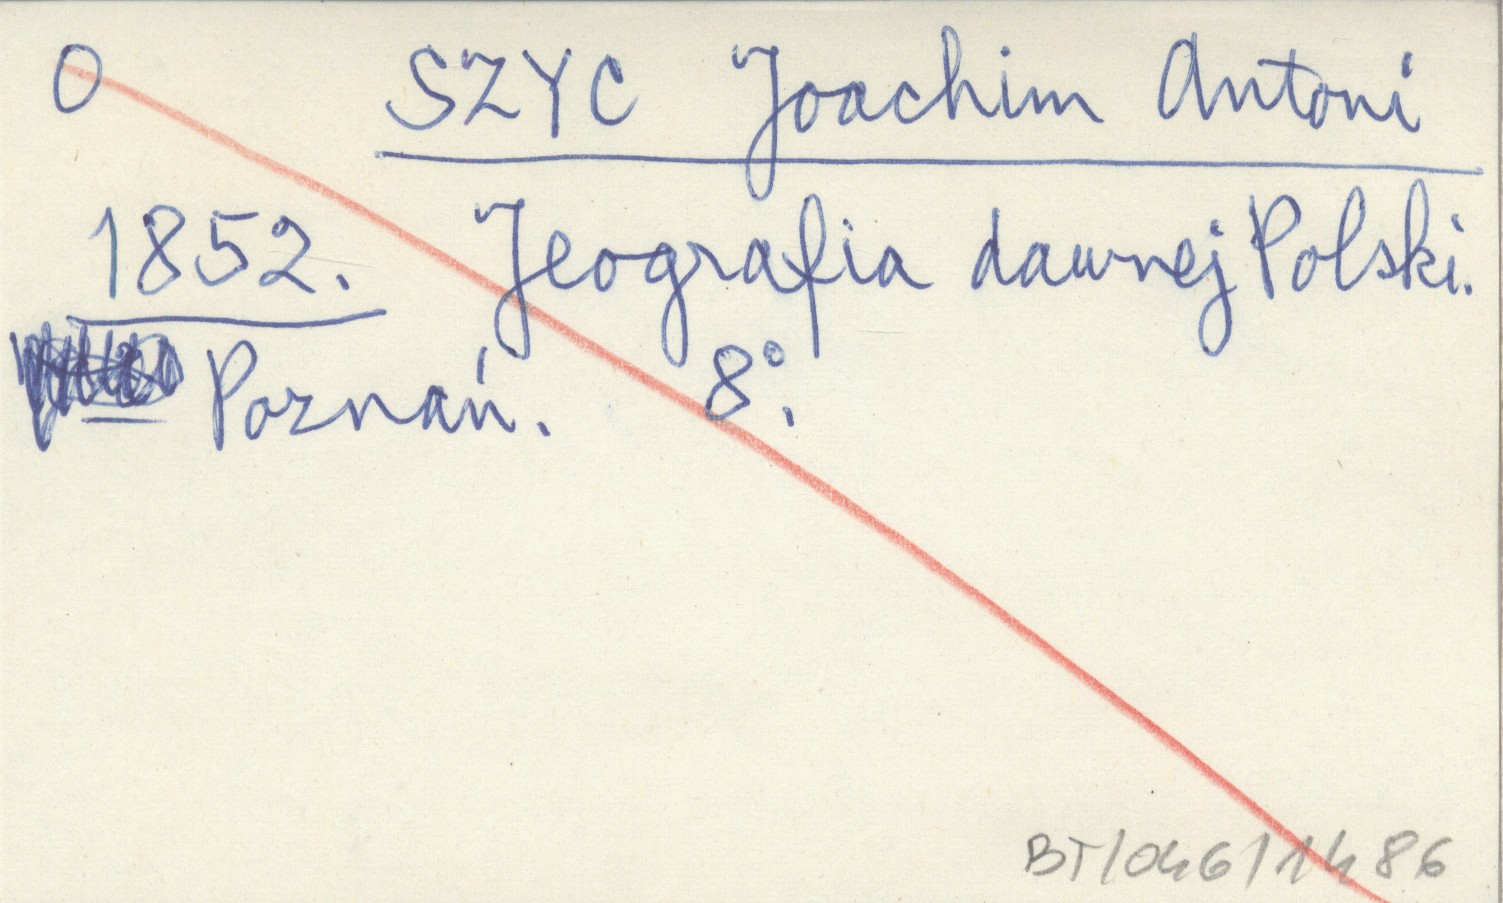 O SZYC Joachim Antoni
1852. Jeografia dawnej Polski.
Poznań. 8°.
BT/046/1486